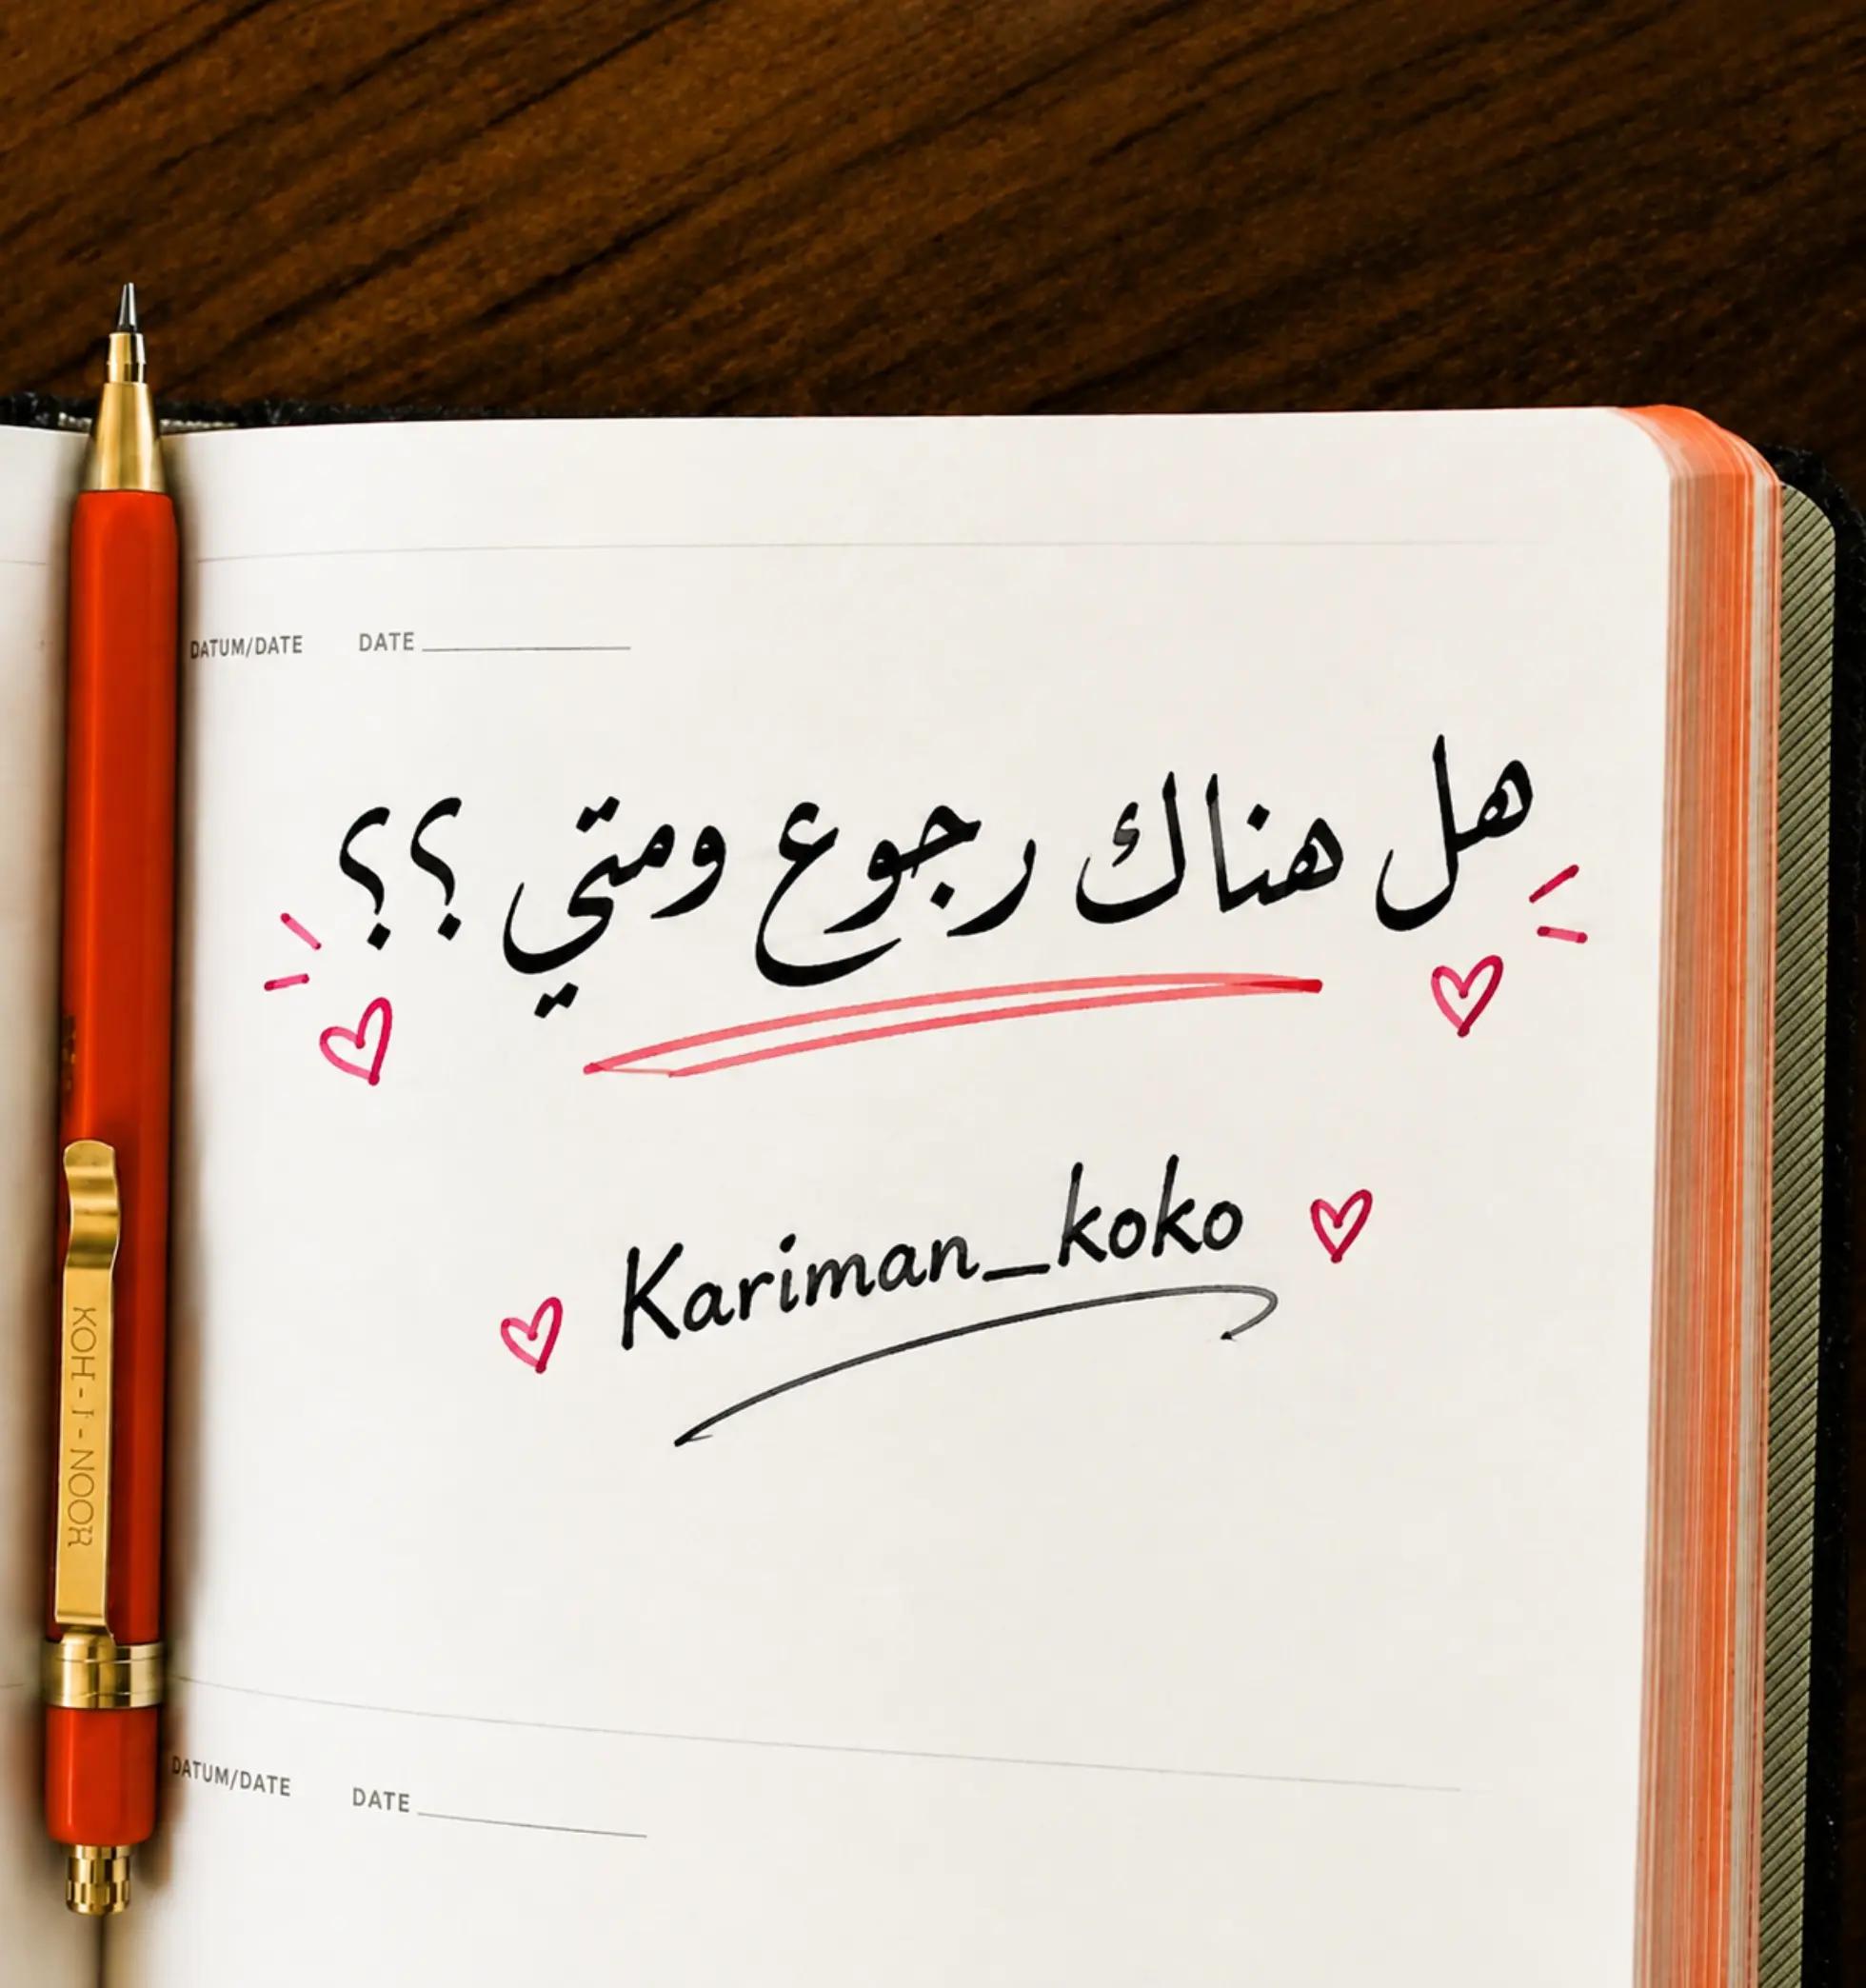 DATUM/DATE DATE
هل هناك رجوع ومتي ؟؟
Kariman_koko
KOH-I-NOOR
DATUM/DATE DATE